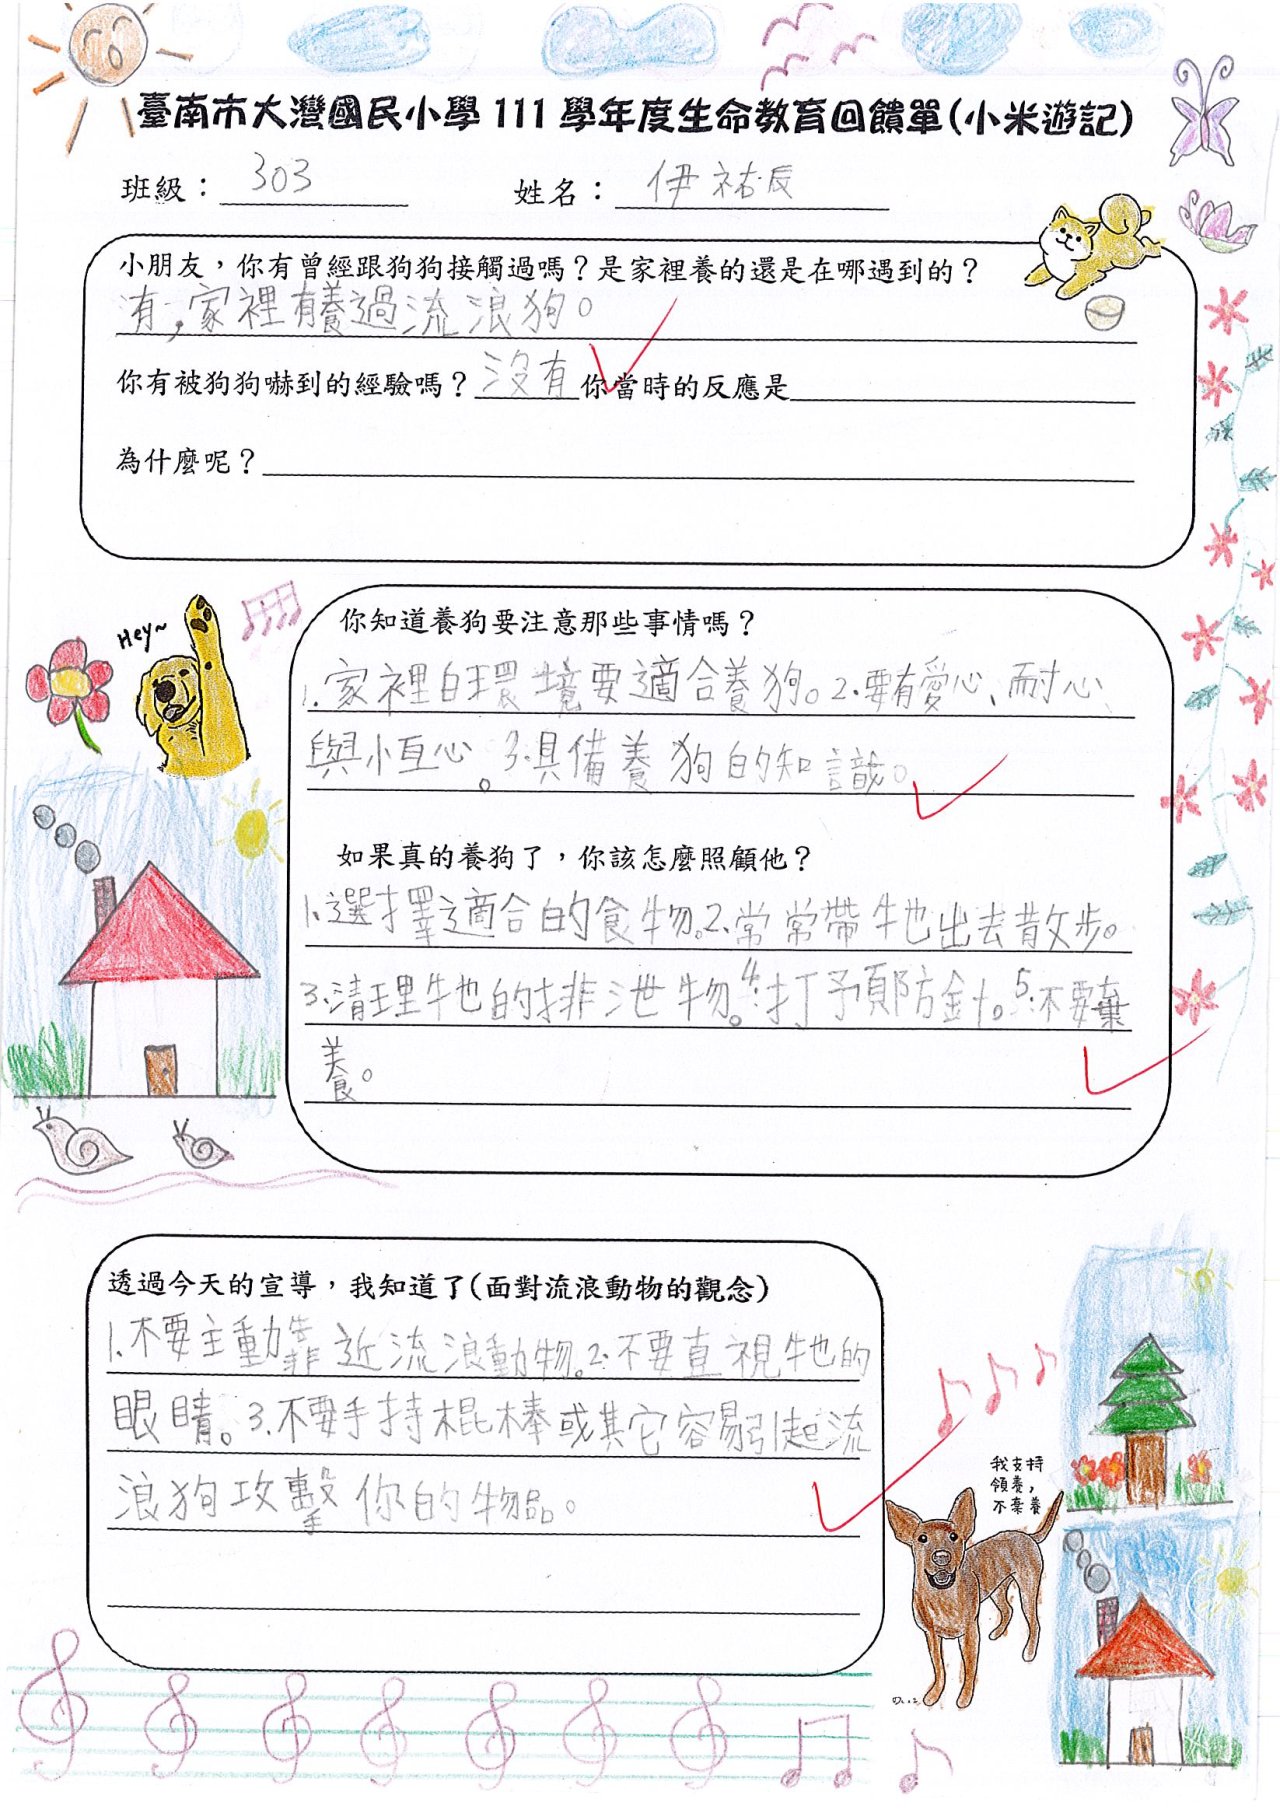 臺南市大灣國民小學111學年度生命教育回饋單(小米遊記)
班級：303 姓名：伊祐辰
小朋友，你有曾經跟狗狗接觸過嗎？是家裡養的還是在哪遇到的？
有，家裡有養過流浪狗。
你有被狗狗嚇到的經驗嗎？沒有你當時的反應是
為什麼呢？
Hey~
你知道養狗要注意那些事情嗎？
1.家裡的環境要適合養狗。2.要有愛心、耐心
與恆心。3.具備養狗的知識。
如果真的養狗了，你該怎麼照顧他？
1.選擇適合的食物。2.常常帶牠出去散步。
3.清理牠的排泄物。4.打預防針。5.不要棄
養。
透過今天的宣導，我知道了(面對流浪動物的觀念)
1.不要主動靠近流浪動物。2.不要直視牠的
眼睛。3.不要手持棍棒或其它容易引起流
浪狗攻擊你的物品。
我支持
領養，
不棄養